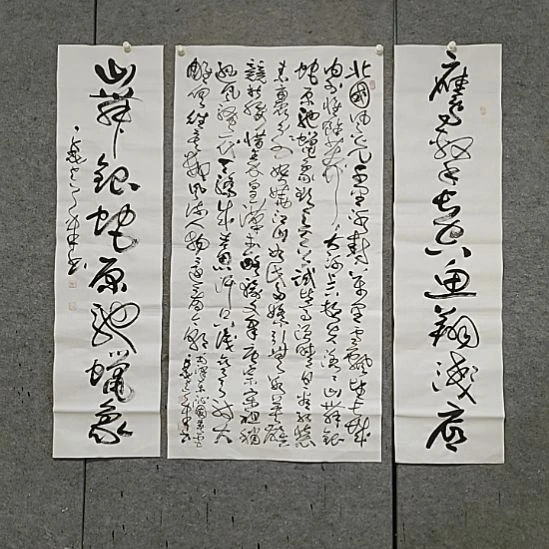 鹰击长空鱼翔浅底
北国风光千里冰封万里雪飘望长城
内外惟余莽莽大河上下顿失滔滔山舞银
蛇原驰蜡象欲与天公试比高须晴日看红装
素裹分外妖娆江山如此多娇引无数英雄
竞折腰惜秦皇汉武略输文采唐宗宋祖稍
逊风骚一代天骄成吉思汗只识弯弓射大
雕俱往矣数风流人物还看今朝
山舞银蛇原驰蜡象